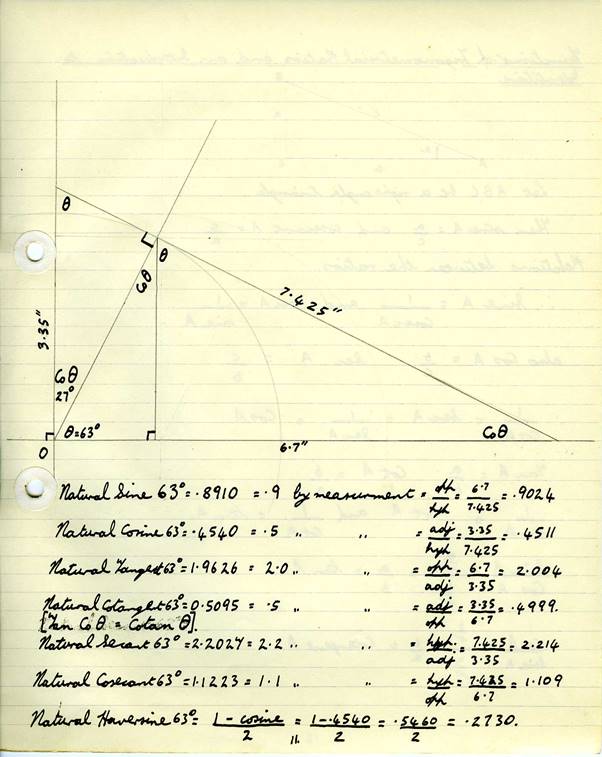 θ
θ
Coθ
7.425"
3.35"
Coθ
27°
θ=63°
Coθ
O
6.7"
Natural Sine 63° = .8910 = .9 by measurment = opp/hyp = 6.7/7.425 = .9024
Natural Cosine 63° = .4540 = .5 " " = adj/hyp = 3.35/7.425 = .4511
Natural Tangest 63° = 1.9626 = 2.0 " " = opp/adj = 6.7/3.35 = 2.004
Natural Cotangest 63° = 0.5095 = .5 " " = adj/opp = 3.35/6.7 = .4999.
[Tan Co θ = Cotan θ].
Natural Secant 63° = 2.2027 = 2.2 " " = hyp/adj = 7.425/3.35 = 2.214
Natural Cosecant 63° = 1.1223 = 1.1 " " = hyp/opp = 7.425/6.7 = 1.109
Natural Haversine 63° = 1 - cosine/2 = 1-.4540/2 = .5460/2 = .2730.
11.